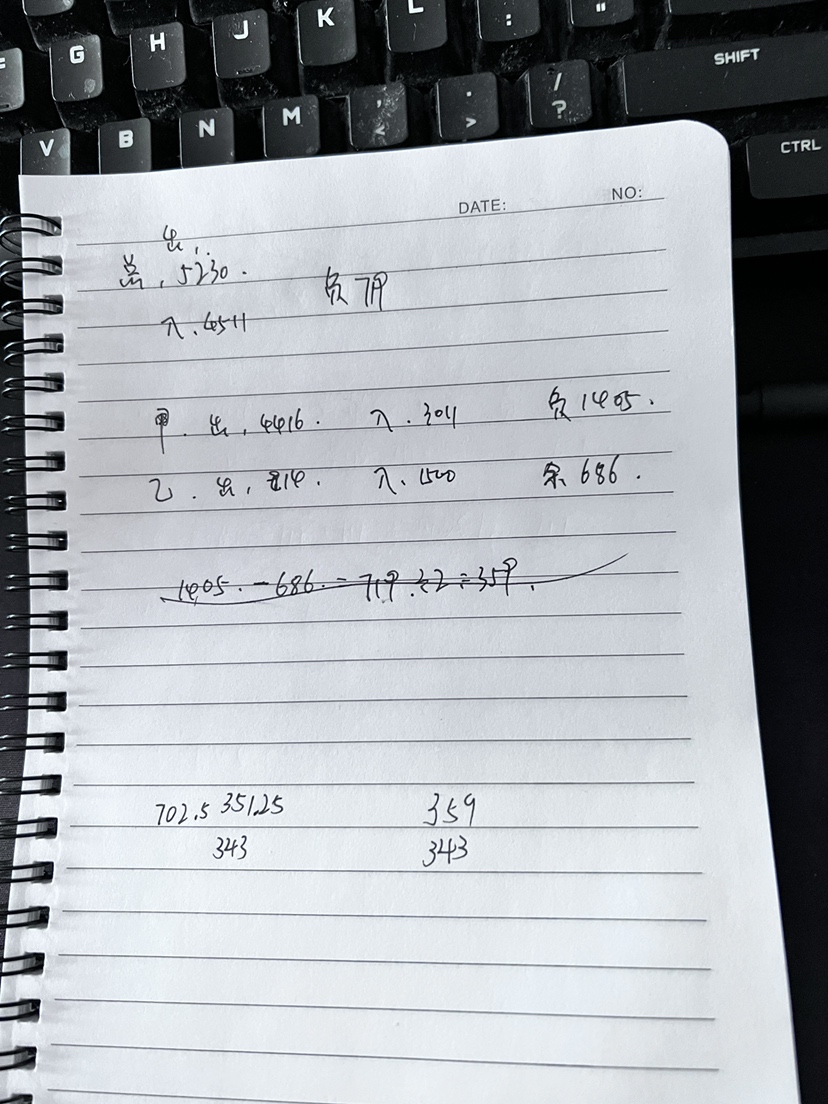 G H J K L : "
V B N M , < . > / ? SHIFT
CTRL
DATE: NO:
出.
总. 5230. 负 719
入. 4511
甲. 出. 4416. 入. 3011 负 1405.
乙. 出. 814. 入. 1500 余 686.
1405. - 686. = 719. ÷2 = 359.
702.5 351.25 359
343 343